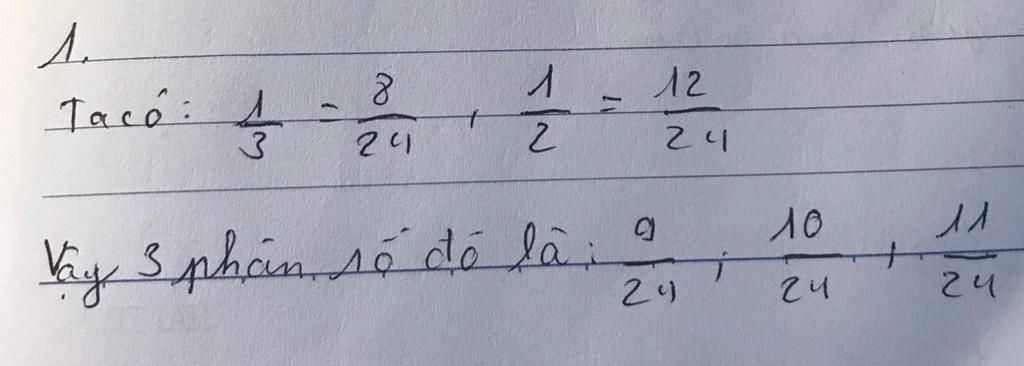 1.
Ta có: 1/3 = 8/24, 1/2 = 12/24
Vậy 3 phân số đó là: 9/24; 10/24, 11/24